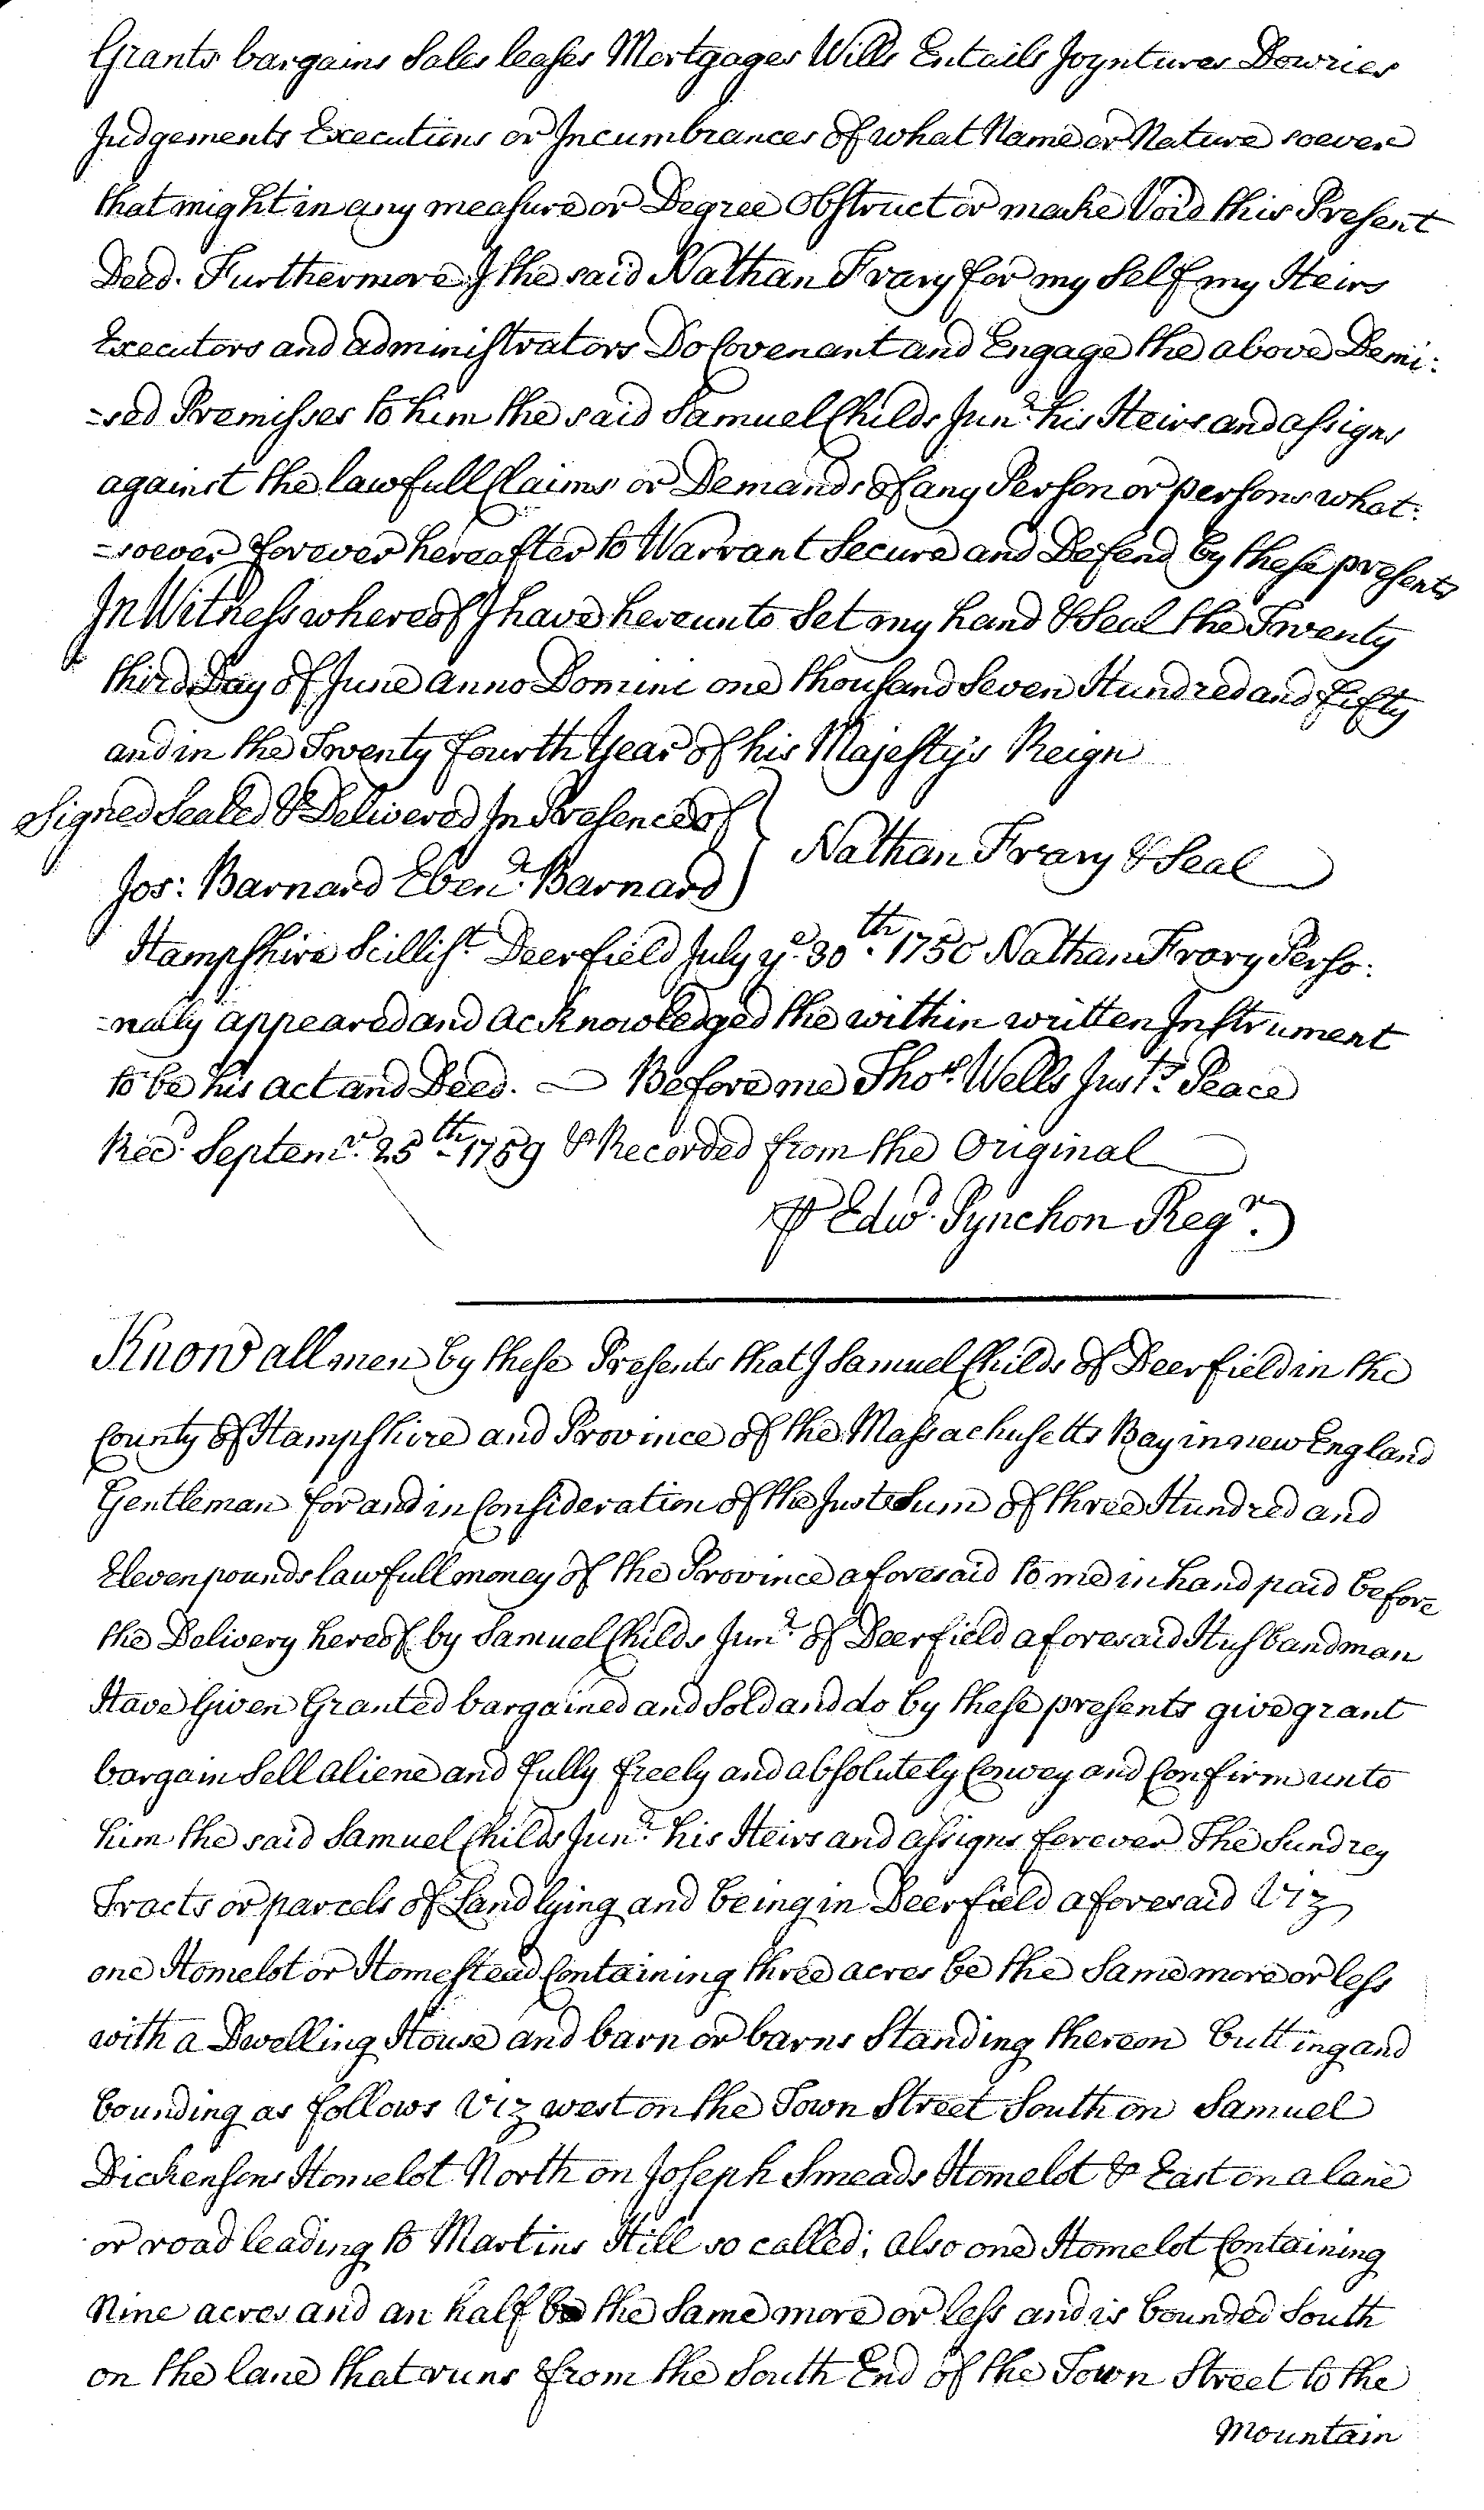 Grants bargains Sales leases Mortgages Wills Entails Joyntures Dowries
Judgements Executions or Incumbrances of what Name or Nature soever
that might in any measure or Degree Obstruct or make Void this Present
Deed. Furthermore I the said Nathan Frary for my Self my Heirs
Executors and administrators Do Covenant and Engage the above Demi:
-sed Premisses to him the said Samuel Childs Junr. his Heirs and assigns
against the lawfull Claims or Demands of any Person or persons what:
-soever forever hereafter to Warrant Secure and Defend by these presents
In Witness whereof I have hereunto Set my hand & Seal the Twenty
third Day of June Anno Domini one thousand Seven Hundred and Fifty
and in the Twenty Fourth Year of his Majestys Reign
Signed Sealed & Delivered In Presence of
Jos: Barnard Ebenr. Barnard
Nathan Frary & Seal
Hampshire Scillist. Deerfield July ye. 30th. 1750 Nathan Frary Perso:
-nally appeared and acknowledged the within written Instrument
to be his act and Deed. — Before me Thos. Wells Justs. Peace
Recd. Septemr. 25th. 1759 & Recorded from the Original
⅌ Edwd. Pynchon Regr.
Know all men by these Presents that I Samuel Childs of Deerfield in the
County of Hampshire and Province of the Massachusetts Bay in new England
Gentleman for and in Consideration of the Just Sum of three Hundred and
Eleven pounds lawfull money of the Province aforesaid to me in hand paid before
the Delivery hereof by Samuel Childs Junr. of Deerfield aforesaid Husbandman
Have Given Granted bargained and Sold and do by these presents give grant
bargain Sell aliene and fully freely and absolutely Convey and Confirm unto
him the said Samuel Childs Junr. his Heirs and assigns forever The Sundrey
Tracts or parcels of Land lying and being in Deerfield aforesaid Viz
one Homelot or Homestead Containing three acres be the Same more or less
with a Dwelling House and barn or barns Standing thereon butting and
bounding as follows Viz west on the Town Street South on Samuel
Dickensons Homelot North on Joseph Smeads Homelot & East on a lane
or road leading to Martins Hill so called; also one Homelot Containing
Nine acres and an half be the Same more or less and is bounded South
on the lane that runs from the South End of the Town Street to the
Mountain